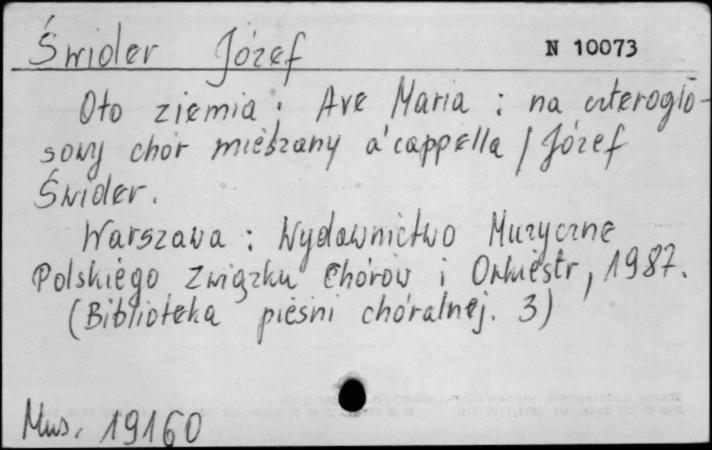 Świder Józef N 10073
Oto ziemia ; Ave Maria : na czterogło-
sowy chór mieszany a'cappella / Józef
Świder.
Warszawa : Wydawnictwo Muzyczne
Polskiego Związku Chórów i Orkiestr, 1987.
(Biblioteka pieśni chóralnej. 3)
Mus. 19160